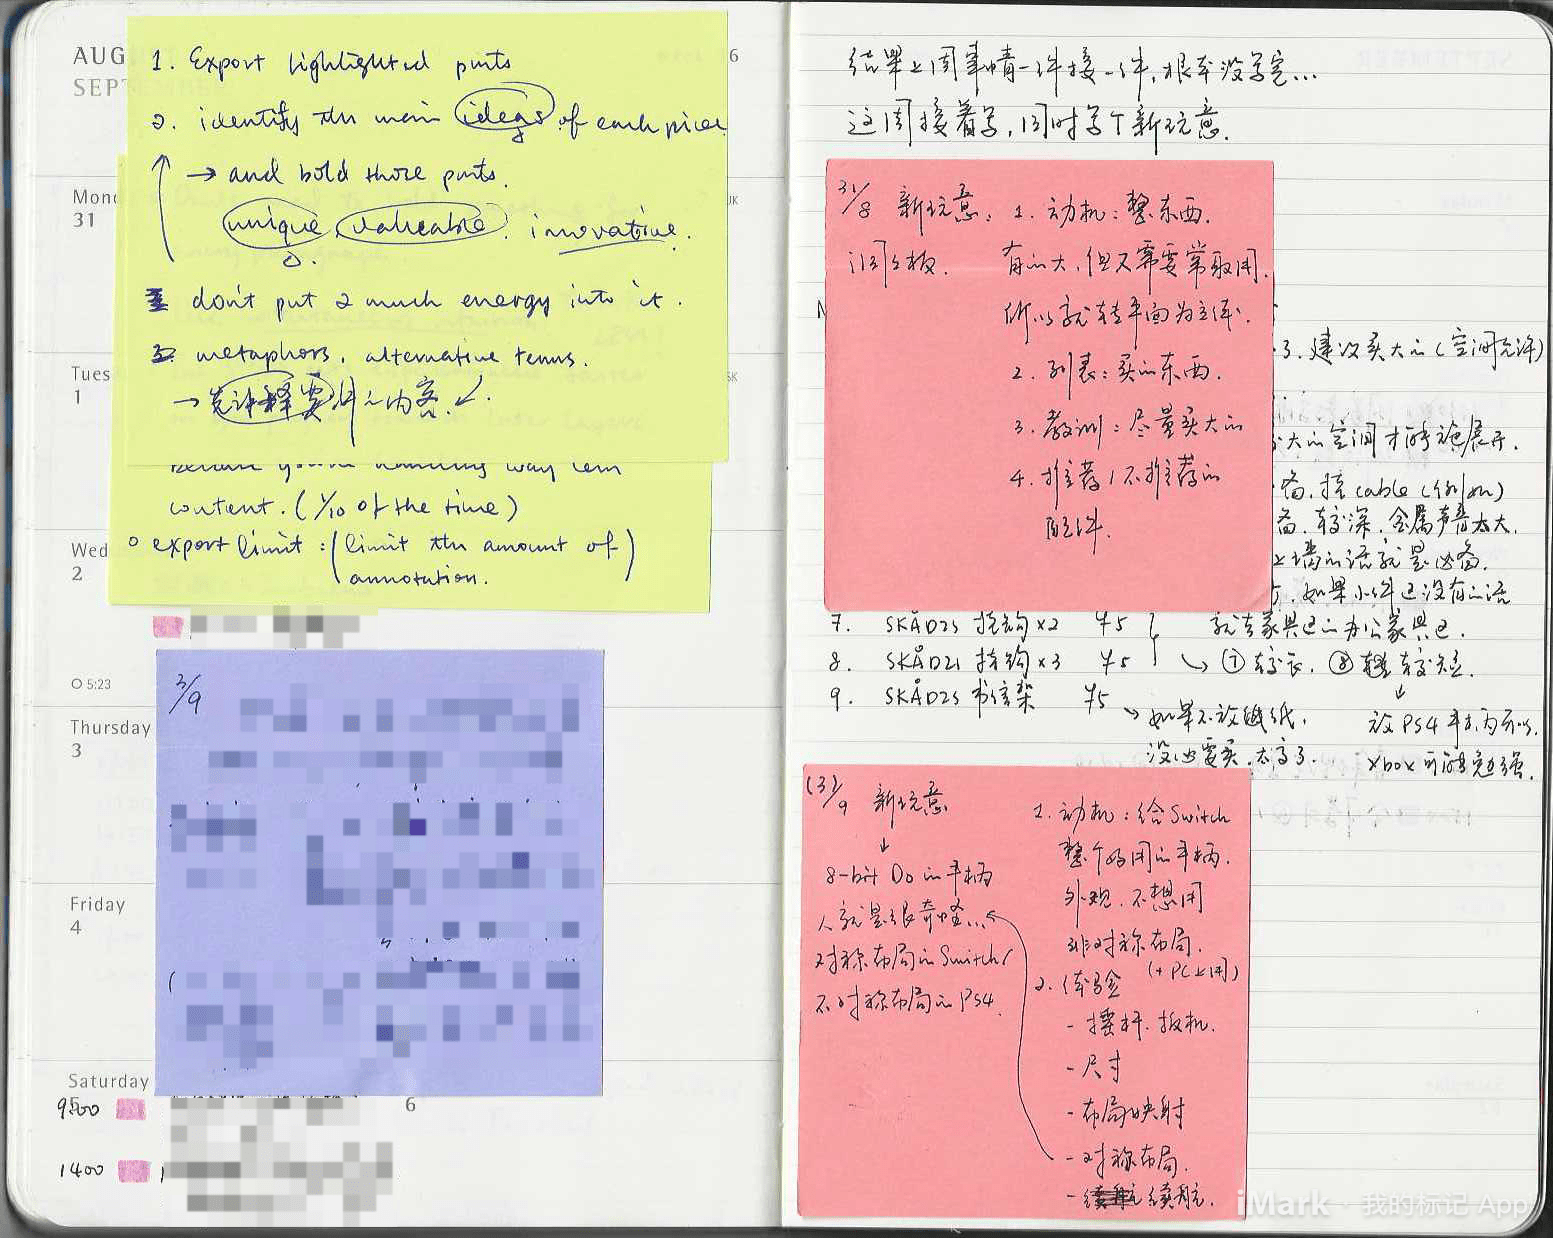 AUG
SEPTEMBER
6
Mond
31
Tues
1
Wed
2
5:23
Thursday
3
Friday
4
Saturday
5
9:00
6
1400
1. Export lighlighted parts
2. identify the main ideas of each piece
→ and bold those parts.
unique, valueable. innovative.
don't put 2 much energy into it.
3. metaphors. alternative terms.
→
content. (1/10 of the time)
export limit: (limit the amount of
annotation.)
3/9
结果上周事情一件接一件,根本没写完...
这周接着写,同时写个新玩意.
31/8 新玩意: 1. 动机: 整东西.
洞洞板. 有的大,但又需要常取用.
所以就转平面为立体.
2. 列表: 买的东西.
3. 教训: 尽量买大的
4. 推荐/不推荐的
配件.
3. 建议买大的(空间允许)
大的空间才能施展开.
备. 挂cable(例如)
备. 较深. 金属声音太大.
上墙的话就是必备.
如果小件区没有的话
7. SKÅDIS 挂钩×2 ¥5 就去家具区的办公家具区.
8. SKÅDIS 挂钩×3 ¥5 → ⑦ 较长. ⑧ 较短.
9. SKÅDIS 书信架 ¥5
→ 如果不放纸,
没必要买. 太高了.
放PS4手柄可以.
xbox可能勉强.
(3)/9 新玩意
↓
8-bit Do的手柄
人就是很奇怪...
对称布局的Switch/
不对称布局的PS4.
1. 动机: 给Switch
整个好用的手柄.
外观. 不想用
非对称布局.
(+PC上用)
2. 体验
- 摇杆. 扳机.
- 尺寸
- 布局映射
- 对称布局.
- 续航.
iMark · 我的标记 App